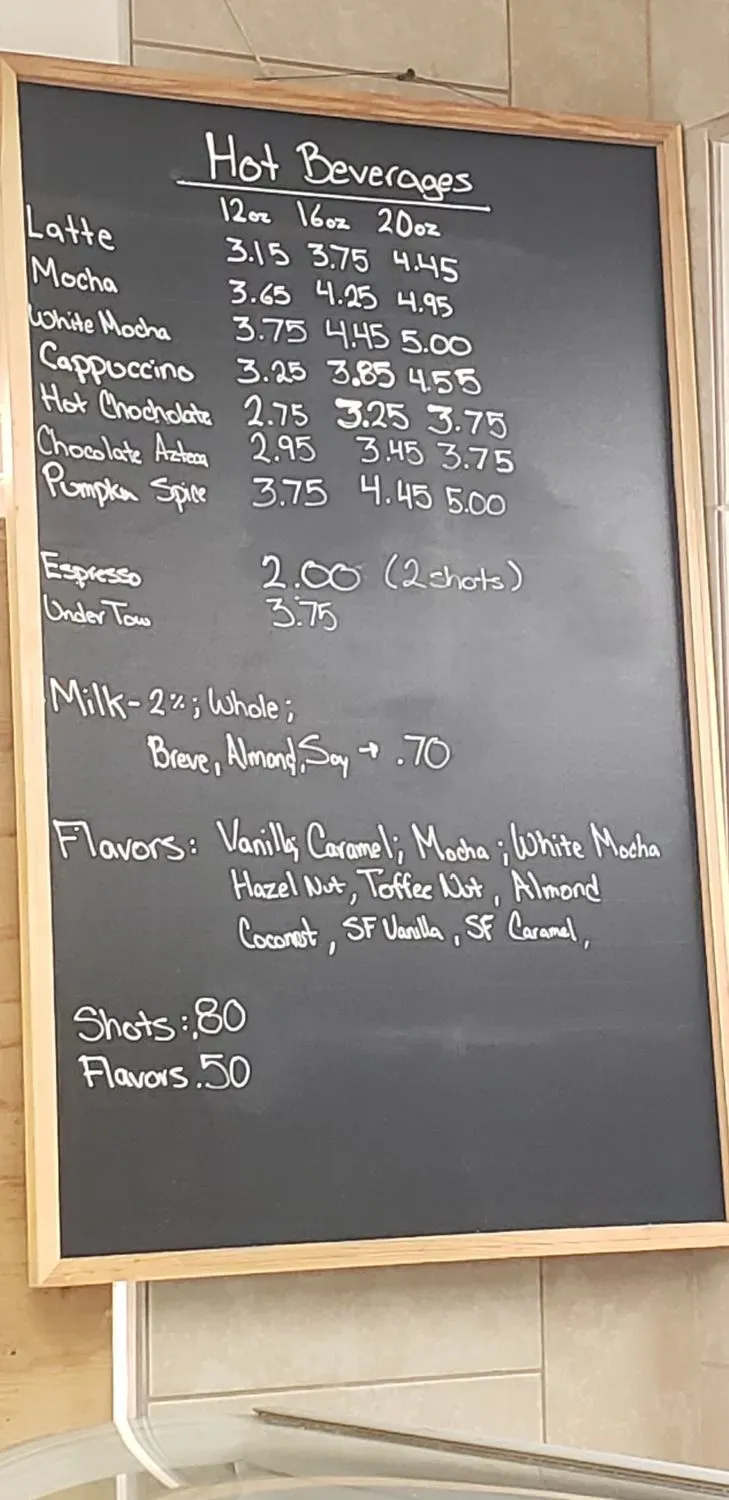 Hot Beverages
12oz 16oz 20oz
Latte 3.15 3.75 4.45
Mocha 3.65 4.25 4.95
White Mocha 3.75 4.45 5.00
Cappuccino 3.25 3.85 4.55
Hot Chocholate 2.75 3.25 3.75
Chocolate Azteca 2.95 3.45 3.75
Pumpkin Spice 3.75 4.45 5.00
Espresso 2.00 (2 shots)
Under Tow 3.75
Milk- 2%; Whole;
Breve, Almond, Soy → .70
Flavors: Vanilla, Caramel; Mocha; White Mocha
Hazel Nut, Toffee Nut, Almond
Coconot, SF Vanilla, SF Caramel,
Shots: .80
Flavors .50